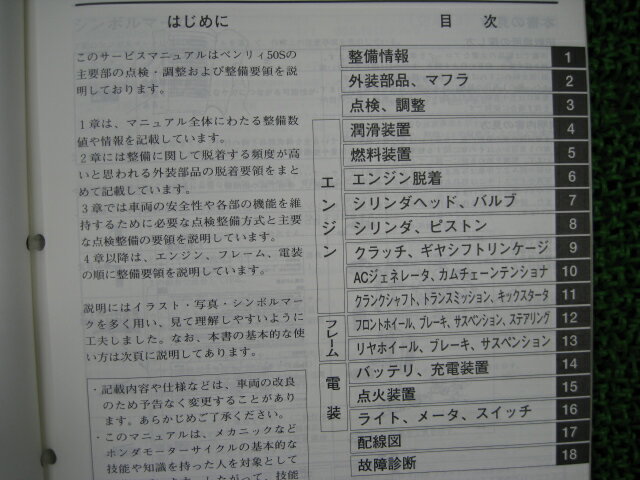 はじめに
このサービスマニュアルはベンリィ50Sの
主要部の点検・調整および整備要領を説
明しております。
1章は、マニュアル全体にわたる整備数
値や情報を記載しています。
2章には整備に関して脱着する頻度が高
いと思われる外装部品の脱着要領をまと
めて記載しています。
3章では車両の安全性や各部の機能を維
持するために必要な点検整備方式と主要
な点検整備の要領を説明しています。
4章以降は、エンジン、フレーム、電装
の順に整備要領を説明しています。
説明にはイラスト・写真・シンボルマー
クを多く用い、見て理解しやすいように
工夫しました。なお、本書の基本的な使
い方は次頁に説明してあります。
・記載内容や仕様などは、車両の改良
のため予告なく変更することがあり
ます。あらかじめご了承ください。
・このマニュアルは、メカニックなど
ホンダモーターサイクルの基本的な
技能や知識を持った人を対象として
目 次
整備情報 1
外装部品、マフラ 2
点検、調整 3
エンジン
潤滑装置 4
燃料装置 5
エンジン脱着 6
シリンダヘッド、バルブ 7
シリンダ、ピストン 8
クラッチ、ギヤシフトリンケージ 9
ACジェネレータ、カムチェーンテンショナ 10
クランクシャフト、トランスミッション、キックスタータ 11
フレーム
フロントホイール、ブレーキ、サスペンション、ステアリング 12
リヤホイール、ブレーキ、サスペンション 13
電装
バッテリ、充電装置 14
点火装置 15
ライト、メータ、スイッチ 16
配線図 17
故障診断 18